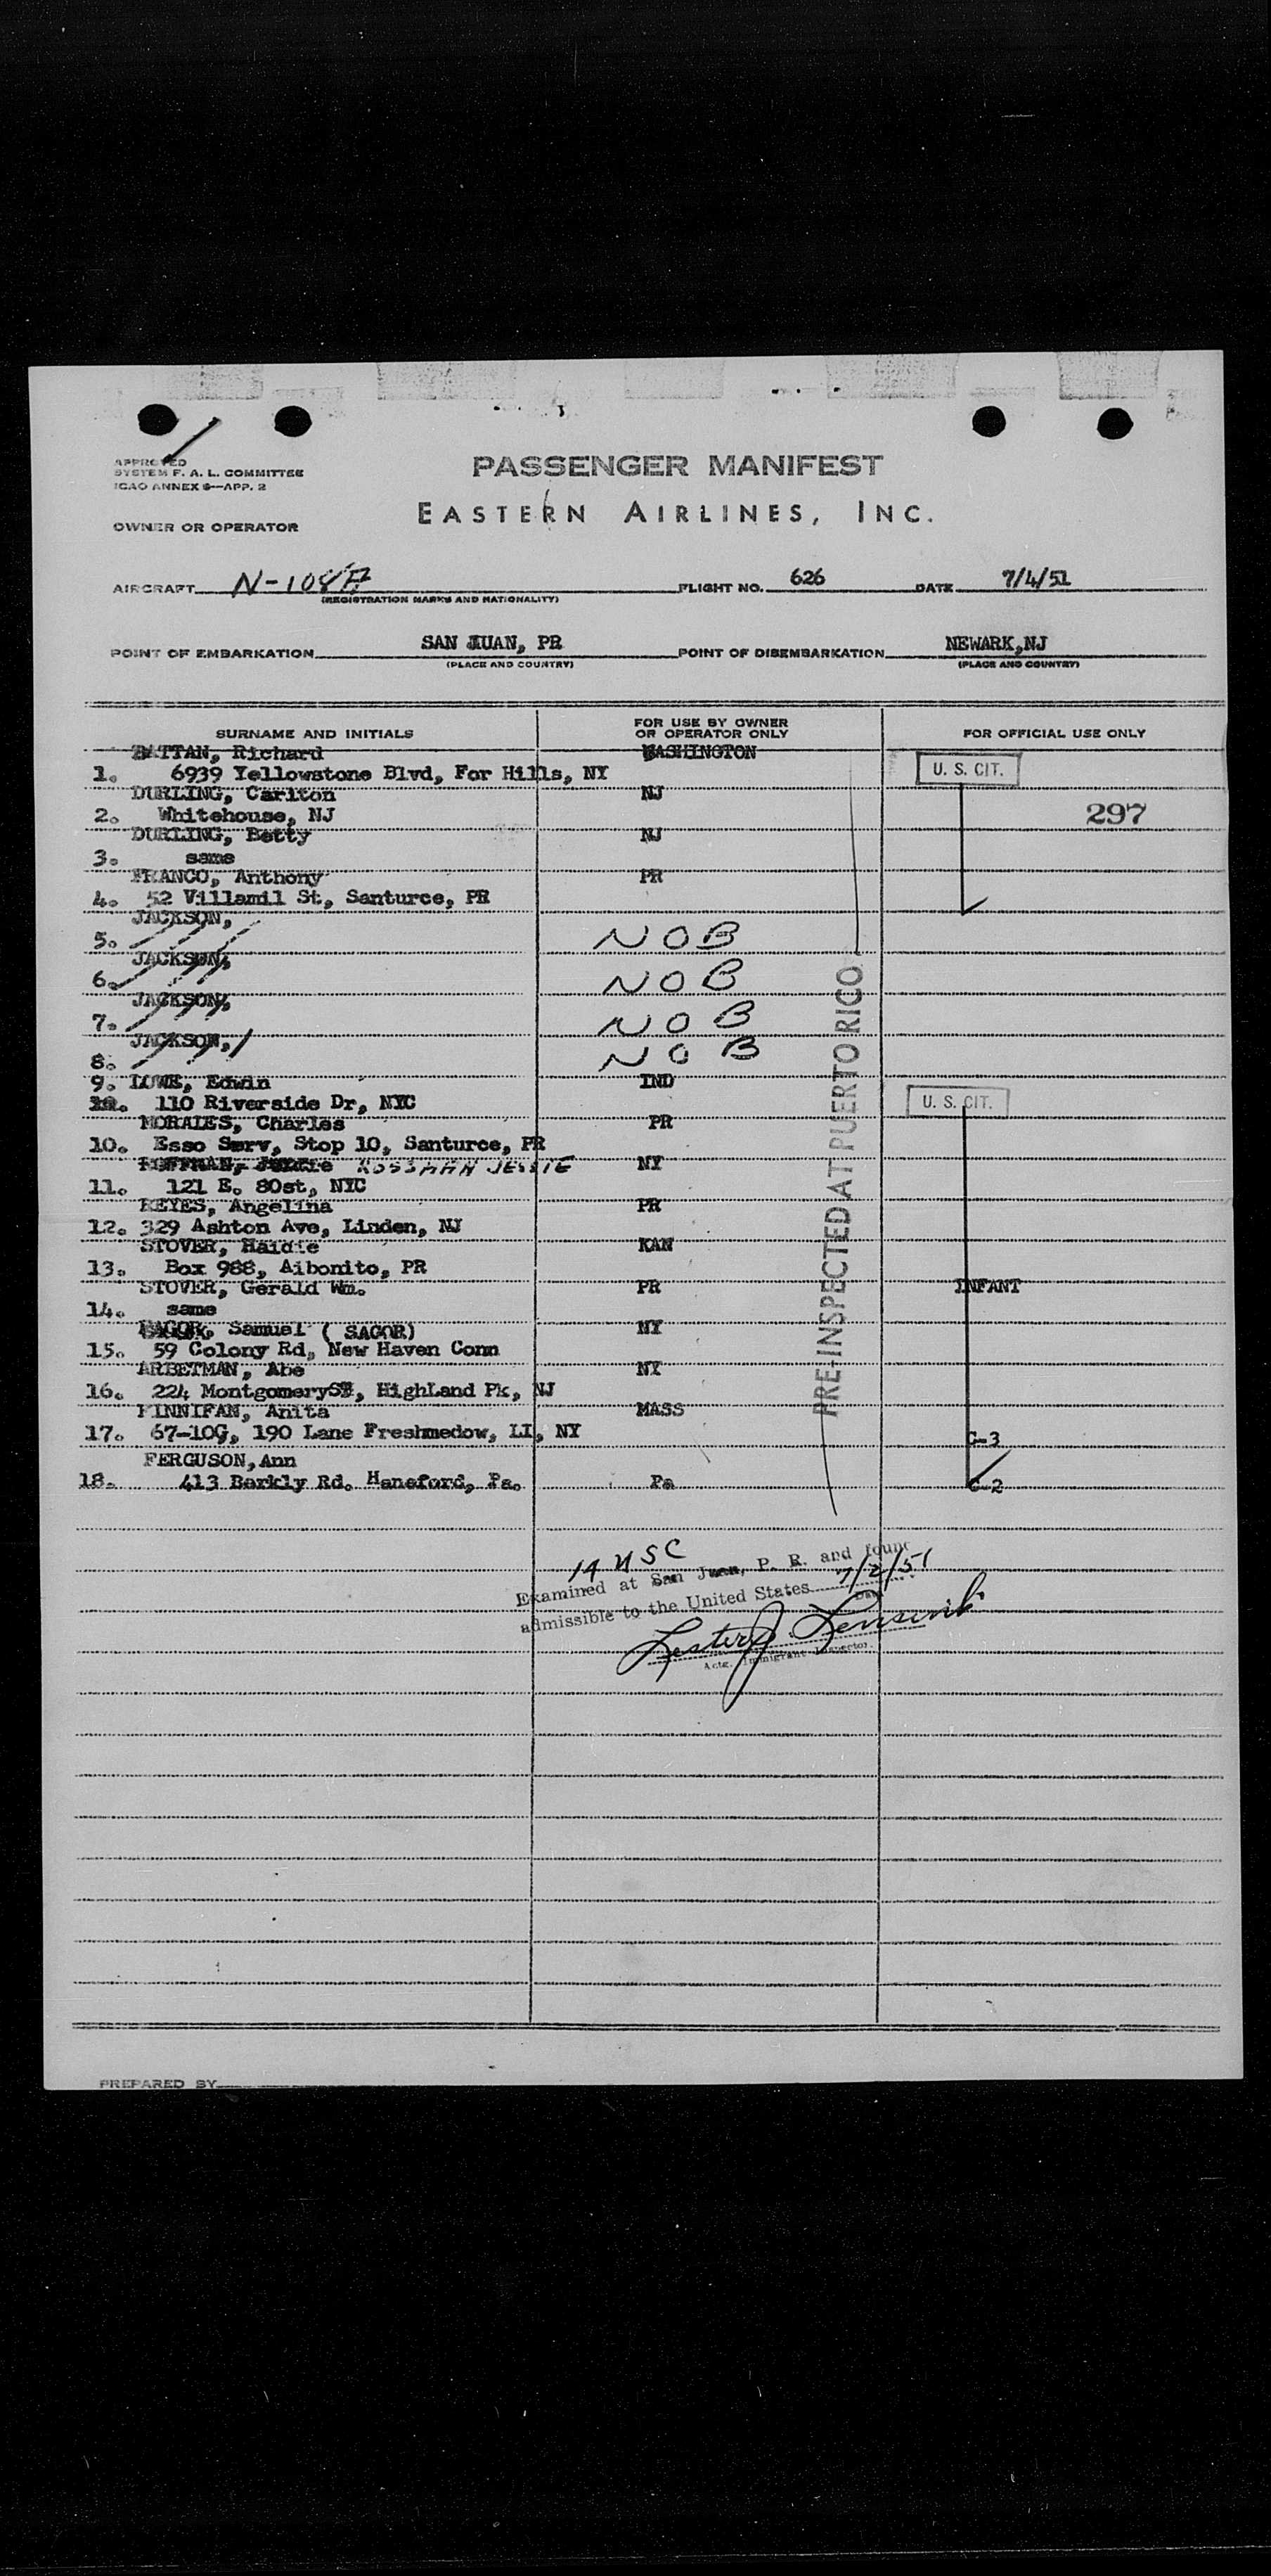 APPROVED
SYSTEM F. A. L. COMMITTEE
ICAO ANNEX 9—APP. 2
PASSENGER MANIFEST
EASTERN AIRLINES, INC.
OWNER OR OPERATOR
AIRCRAFT N-108A FLIGHT NO. 626 DATE 7/4/51
(REGISTRATION MARKS AND NATIONALITY)
POINT OF EMBARKATION SAN JUAN, PR POINT OF DISEMBARKATION NEWARK,NJ
(PLACE AND COUNTRY) (PLACE AND COUNTRY)
SURNAME AND INITIALS FOR USE BY OWNER OR OPERATOR ONLY FOR OFFICIAL USE ONLY
BATTAN, Richard WASHINGTON
1. 6939 Yellowstone Blvd, For Hills, NY U. S. CIT.
DURLING, Carlton NJ
2. Whitehouse, NJ 297
DURLING, Betty NJ
3. same
FRANCO, Anthony PR
4. 52 Villamil St, Santurce, PR
JACKSON,
5. NOB
JACKSON,
6. NOB
JACKSON,
7. NOB
JACKSON,
8. NOB
9. LOWE, Edwin IND
110 Riverside Dr, NYC U. S. CIT.
MORALES, Charles PR
10. Esso Serv, Stop 10, Santurce, PR
ROSSMAN JESSIE NY
11. 121 E. 80st, NYC
REYES, Angelina PR
12. 329 Ashton Ave, Linden, NJ
STOVER, Haidie KAN
13. Box 988, Aibonito, PR
STOVER, Gerald Wm. PR INFANT
14. same
Samuel ( SAGOR) NY
15. 59 Colony Rd, New Haven Conn
ARBETMAN, Abe NY
16. 224 MontgomerySt, HighLand Pk, NJ
FINNIFAN, Anita MASS
17. 67-10G, 190 Lane Freshmedow, LI, NY C-3
FERGUSON,Ann
18. 413 Barkly Rd. Haneford, Pa. Pa C-2
PRE-INSPECTED AT PUERTO RICO
14 USC
Examined at San Juan, P. R. and found
admissible to the United States 7/2/51
Date
Lester J
Actg. Immigrant Inspector.
PREPARED BY